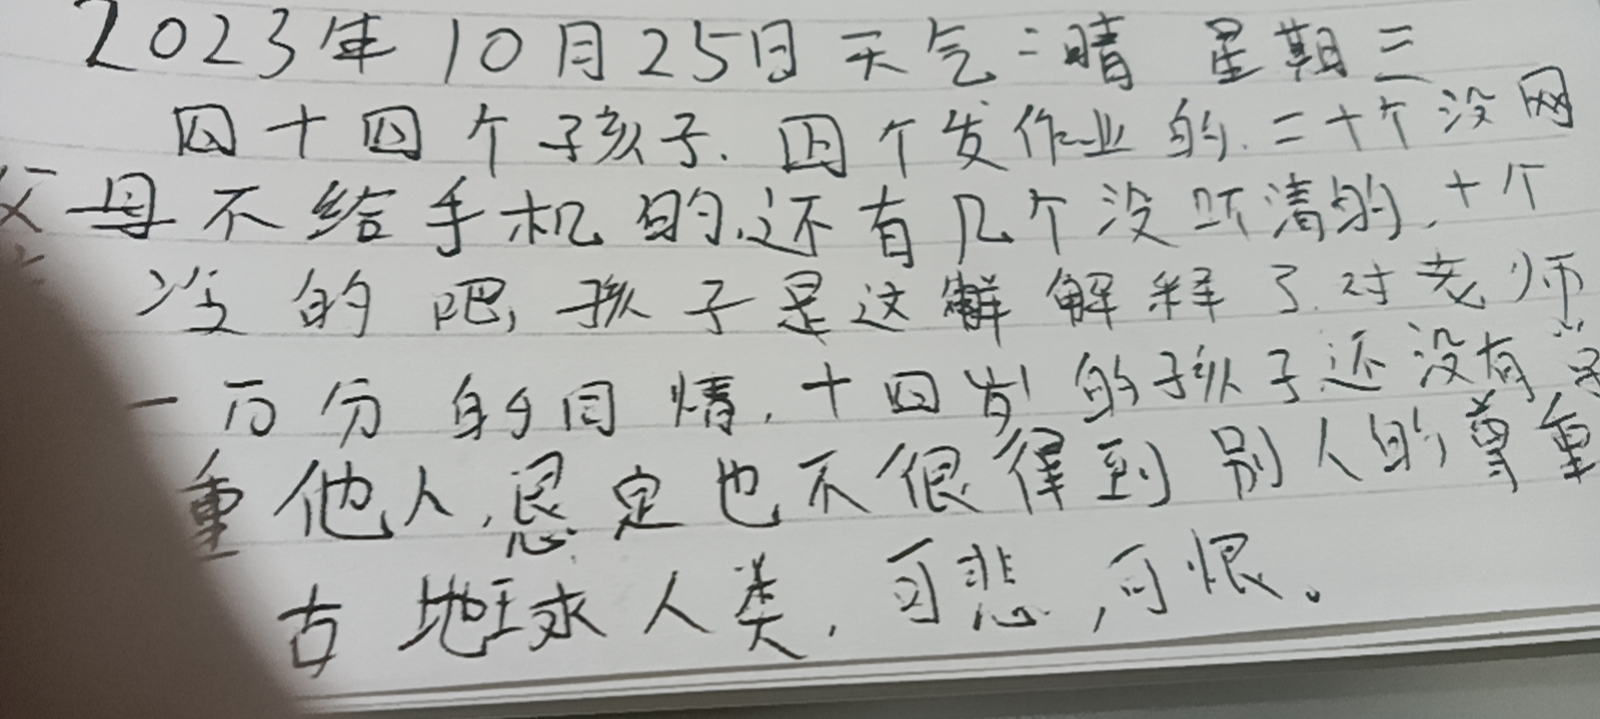 2023年10月25日天气:晴 星期三
四十四个孩子.四个发作业的.二十个没网
父母不给手机的.还有几个没听清的.十个
没的吧,孩子是这解释了.对老师
一万分的同情.十四岁的孩子还没有学
重他人,定也不很得到别人的尊重
古地球人类,可悲,可恨。